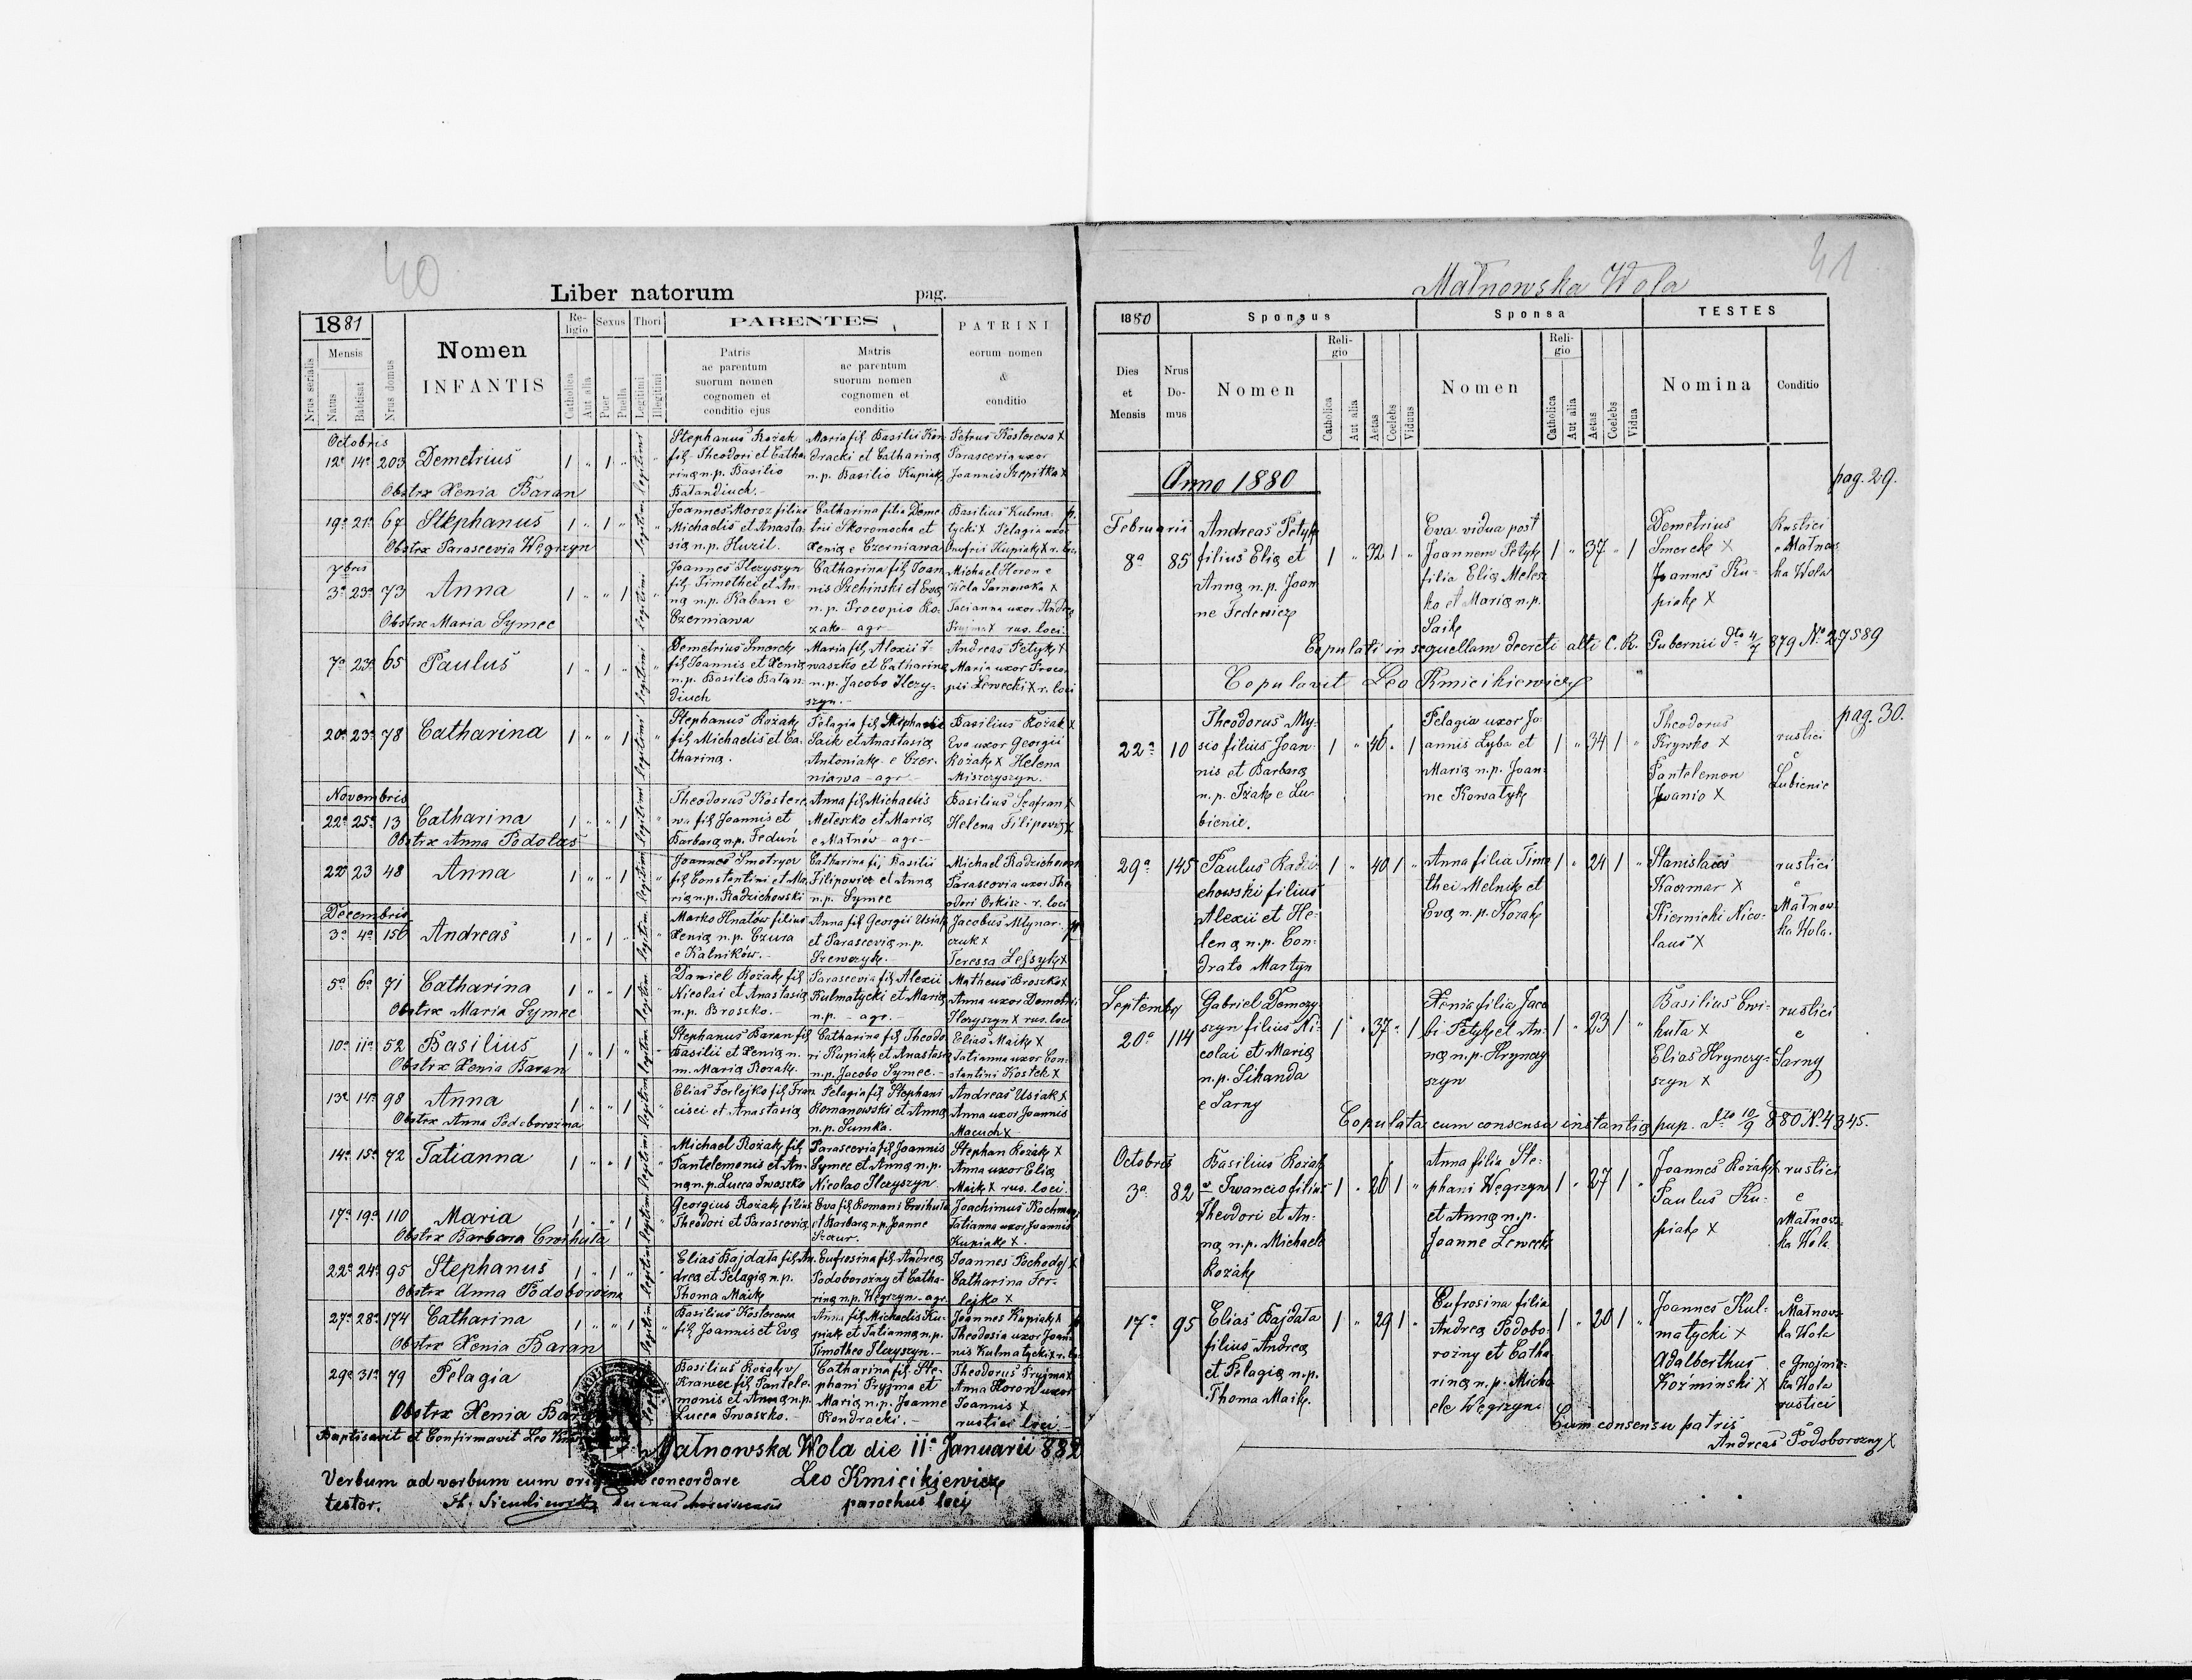 40
Liber natorum pag.
1881
Nrus serialis
Mensis
Natus
Babtisat
Nrus domus
Nomen
INFANTIS
Re-
ligio
Catholica
Aut alia
Sexus
Puer
Puella
Thori
Legitimi
Illegitimi
PARENTES
Patris
ac parentum
suorum nomen
cognomen et
conditio ejus
Matris
ac parentum
suorum nomen
cognomen et
conditio
PATRINI
eorum nomen
&
conditio
Octobris
12ª 14ª 203 Demetrius 1 " 1 " legitimi "
Obstrx Xenia Baran
Stephanus Kozak
fil. Theodori et Catha
rina n.p. Basilio
Batandiuch.
Maria fil. Basilii Kon-
dracki et Catharina
n.p. Basilio Kupiak
Petrus Kosterewa X
Parascevia uxor
Joannis Szepitka X
19ª 21ª 67 Stephanus 1 " 1 " legitimi "
Obstrx Parascevia Węgrzyn
Joannes Moroz filius
Michaelis et Anasta-
sia n.p. Huzil.
Catharina filia Deme
trii Skoromocha et
Xenia e Czerniawa
Basilius Kulma-
tycki X Pelagia uxor
Onufrii Kupiak X r. loci
7bris
3ª 23ª 73 Anna 1 " " 1 legitimi "
Obstrx Maria Symec
Joannes Hryszyn
fil. Timothei et An-
na n.p. Kaban e
Czerniawa
Catharina fil. Joan
nis Szehinski et Eva
n.p. Procopio Ko-
zak - agr
Michael Horon e
Wola Sarnowska X
Tacianna uxor
Pryjma X rus. loci.
7ª 23ª 65 Paulus 1 " 1 " legitimi "
Demetrius Smorek
fil. Joannis et Xenia
n.p. Basilio Batan-
diuch
Maria fil. Alexii I-
waszko et Catharina
n.p. Jacobo Hry-
szyn.-
Andreas Petyk X
Maria uxor Proco-
pii Lewecki X r. loci
20ª 23ª 78 Catharina 1 " " 1 legitimi "
Stephanus Kozak
fil. Michaelis et Ca-
tharina.
Pelagia fil. Stephani
Saik et Anastasia
Antoniak e Czer-
niawa - agr
Basilius Kozak X
Eva uxor Georgii
Kozak X Helena
Miszczyszyn.
Novembris
22ª 25ª 13 Catharina 1 " " 1 legitimi "
Obstrx Anna Podolas
Theodorus Kostere
wa fil. Joannis et
Barbara n.p. Feduń
Anna fil. Michaelis
Meleszko et Maria
e Małnów - agr
Basilius Szafran X
Helena Filipowicz X
22 23 48 Anna 1 " " 1 legitim "
Joannes Smotrycz
fil. Constantini et Ma-
ria n.p. Radzichowski
Catharina fil. Basilii
Filipowicz et Anna
n.p. Symec
Michael Radzichowski
Parascovia uxor Theo
odori Orkisz - r. loci
Decembris
3ª 4ª 156 Andreas 1 " 1 " legitim "
Marko Hnatów filius
Xenia n.p. Czura
e Kalników.-
Anna fil. Georgii Usiak
et Parascevia n.p.
Szewczyk.-
Jacobus Mlynar-
czuk X
Teressa X
5ª 6ª 71 Catharina 1 " " 1 legitim "
Obstrx Maria Symec
Daniel Kozak fil.
Nicolai et Anastasia
n.p. Broszko.-
Parascevia fil. Alexii
Kulmatycki et Maria
n.p. - agr.-
Matheus Broszko X
Anna uxor Demetrii
Hryszyn X rus. loci
10ª 11ª 52 Basilius 1 " 1 " legitim "
Obstrx Xenia Baran
Stephanus Baran fil.
Basilii et Xenia n.
m. Maria Kozak.
Catharina fil. Theodo
ri Kupiak et Anastasia
n.p. Jacobo Symec.-
Elias Maik X
Tatianna uxor Con-
stantini Kostek X
13ª 14ª 98 Anna 1 " " 1 legitim "
Obstrx Anna Podoborożna
Elias Ferlejko fil. Fran
cisci et Anastasia
Pelagia fil. Stephani
Romanowski et Anna
n.p. Sumka.
Andreas Usiak X
Anna uxor Joannis
Macuch X
14ª 15ª 72 Tatianna 1 " " 1 legitim "
Michael Kozak fil.
Pantelemonis et An-
na n.p. Lucca Iwaszko
Parascevia fil. Joannis
Symec et Anna n.p.
Nicolao Hryszyn
Stephan Kozak X
Anna uxor Elia
Maik X rus. loci.
17ª 19ª 110 Maria 1 " " 1 legitim "
Obstrx Barbara Cwihuta
Georgius Kozak filius
Theodori et Parascevia
Eva fil. Romani Cwihuta
et Barbara n.p. Joanne
Szczur.
Joachimus
Tatianna uxor Joannis
Kupiak X.
22ª 24ª 95 Stephanus 1 " 1 " legitim "
Obstrx Anna Podoborożna
Elias Bajdała fil. An-
drea et Pelagia n.p.
Thoma Maik
Eufrosina fil. Andrea
Podoborożny et Catha-
rina n.p. Węgrzyn - agr.
Joannes Pochodaj X
Catharina Fer-
lejko X
27ª 28ª 174 Catharina 1 " " 1 legitim "
Obstrx Xenia Baran
Basilius Kosterewa
fil. Joannis et Eva
Anna fil. Michaelis Ku-
piak et Tatianna n.p.
Timotheo Hryszyn.-
Joannes Kupiak X
Theodosia uxor Joan
nis Kulmatycki X r. loci
29ª 31ª 79 Pelagia
Obstrx Xenia Baran
Basilius Kozak v/
Krawec fil. Pantele-
monis et Anna n.p.
Lucca Iwaszko.-
Catharina fil. Ste-
phani Pryjma et
Maria n.p. Joanne
Kondracki.-
Theodorus Pryjma X
Anna Horon uxor
Joannis X
rustici loci.-
Baptisavit et Confirmavit Leo
Małnowska Wola die 11ª Januarii 882
Verbum ad verbum cum concordare
testor.
Leo Kmicikiewicz
parochus loci
41
Małnowska Wola
1880
Dies
et
Mensis
Nrus
Do-
mus
Sponsus
Nomen
Reli-
gio
Catholica
Aut alia
Aetas
Coelebs
Viduus
Sponsa
Nomen
Reli-
gio
Catholica
Aut alia
Aetas
Coelebs
Vidua
TESTES
Nomina
Conditio
Anno 1880
pag. 29.
Februarii
8ª 85
Andreas Petyk
filius Elia et
Anna n.p. Joan
ne Fedewicz
1 " 32 1 "
Eva vidua post
Joannem Petyk
filia Elia Melesz
ko et Maria n.p.
Saik
1 " 37 " 1
Demetrius
Smorek X
Joannes Ku-
piak X
Rustici
e Małnows
ka Wola
Copulati in sequellam decreti alti C. R. Gubernii dto 4/7 879 No 27589
Copulavit Leo Kmicikiewicz
pag. 30.
22ª 10
Theodorus My-
sio filius Joan-
nis et Barbara
n.p. Iżak e Lu-
bienie.
1 " 46 " 1
Pelagia uxor Jo-
annis Łyba et
Maria n.p. Joan-
ne Kowałyk
1 " 34 1 "
Theodorus
Krywko X
Pantelemon
Iwanio X
rustici
e
Lubienie
29ª 145
Paulus Radzi-
chowski filius
Alexii et He-
lena n.p. Con-
drato Martyn
1 " 40 1 "
Anna filia Timo
thei Melnik et
Eva n.p. Kozak
1 " 24 1 "
Stanislaus
Kaczmar X
Kiernicki Nico-
laus X
rustici
e
Małnow-
ka Wola.
Septembr
20ª 114
Gabriel Demczy-
szyn filius Ni-
colai et Maria
n.p. Sihanda
e Sarny
1 " 37 " 1
Xenia filia Jaco
bi Petyk et An-
na n.p. Hrynczy
szyn
1 " 23 1 "
Basilius Cwi-
huta X
Elias Hrynczy-
szyn X
rustici
e
Sarny
Copulata cum consensu instantia pup. dto 10/9 880 No 4345.
Octobris
3ª 82
Basilius Kozak
v Iwancio filius
Theodori et An-
na n.p. Michaele
Kozak
1 " 26 1 "
Anna filia Ste-
phani Węgrzyn
et Anna n.p.
Joanne Lewecki
1 " 27 1 "
Joannes Kozak X
Paulus Ku-
piak X
rustici
e
Małnows-
ka Wola
17ª 95
Elias Bajdała
filius Andrea
et Pelagia n.p.
Thoma Maik.
1 " 29 1 "
Eufrosina filia
Andrea Podobo-
rożny et Catha-
rina n.p. Micha
ele Węgrzyn
1 " 20 1 "
Joannes Kul-
matycki X
Adalberthus
Koźminski X
e
Małnows-
ka Wola
e Gnojnic-
ka Wola
rustici
Cum consensu patris
Andreas Podoborożny X